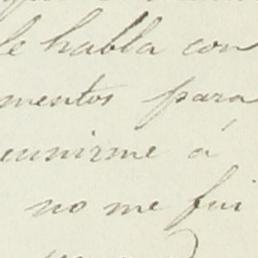 le habla con
mentos para
eunirme á
no me fui